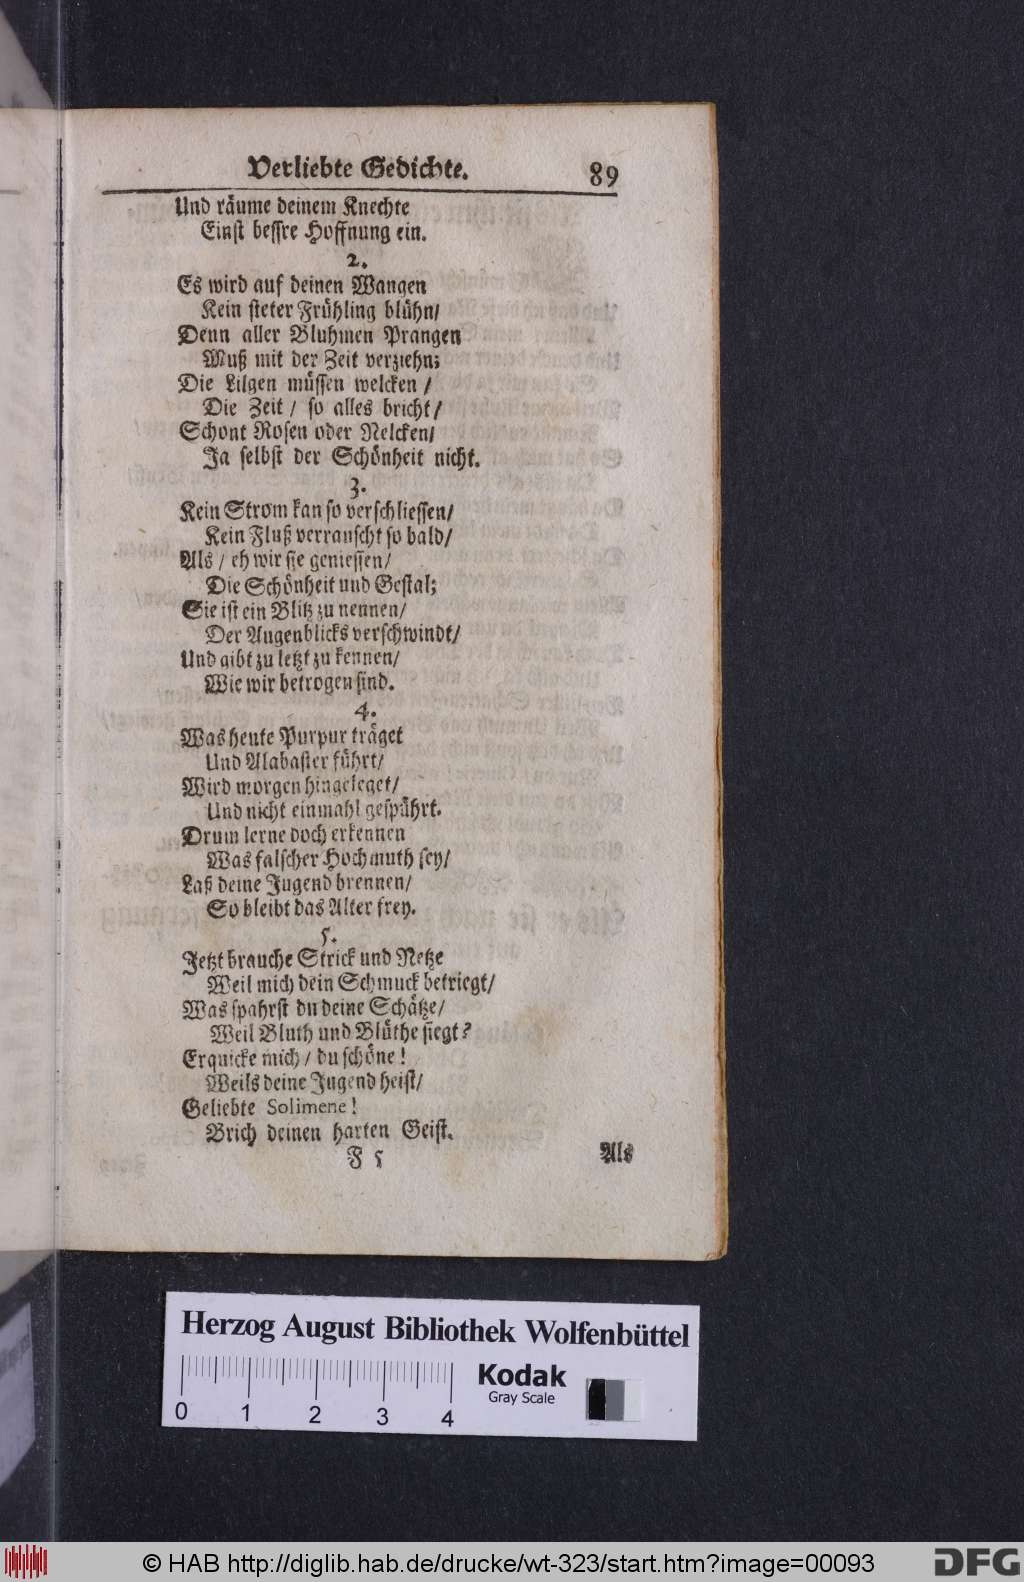 Verliebte Gedichte. 89
Und räume deinem Knechte
Einst bessre Hoffnung ein.
2.
Es wird auf deinen Wangen
Kein steter Frühling blühn/
Denn aller Bluhmen Prangen
Muß mit der Zeit verziehn;
Die Lilgen müssen welcken /
Die Zeit / so alles bricht/
Schont Rosen oder Nelcken/
Ja selbst der Schönheit nicht.
3.
Kein Strom kan so verschliessen/
Kein Fluß verrauscht so bald/
Als / eh wir sie geniessen/
Die Schönheit und Gestal;
Sie ist ein Blitz zu nennen/
Der Augenblicks verschwindt/
Und gibt zu letzt zu kennen/
Wie wir betrogen sind.
4.
Was heute Purpur träget
Und Alabaster führt/
Wird morgen hingeleget/
Und nicht einmahl gespührt.
Drum lerne doch erkennen
Was falscher Hochmuth sey/
Laß deine Jugend brennen/
So bleibt das Alter frey.
5.
Jetzt brauche Strick und Netze
Weil mich dein Schmuck betriegt/
Was spahrst du deine Schätze/
Weil Bluth und Blüthe siegt?
Erquicke mich / du schöne!
Weils deine Jugend heist/
Geliebte Solimene!
Brich deinen harten Geist.
F 5 Als
Herzog August Bibliothek Wolfenbüttel
Kodak
Gray Scale
0 1 2 3 4
© HAB http://diglib.hab.de/drucke/wt-323/start.htm?image=00093
DFG